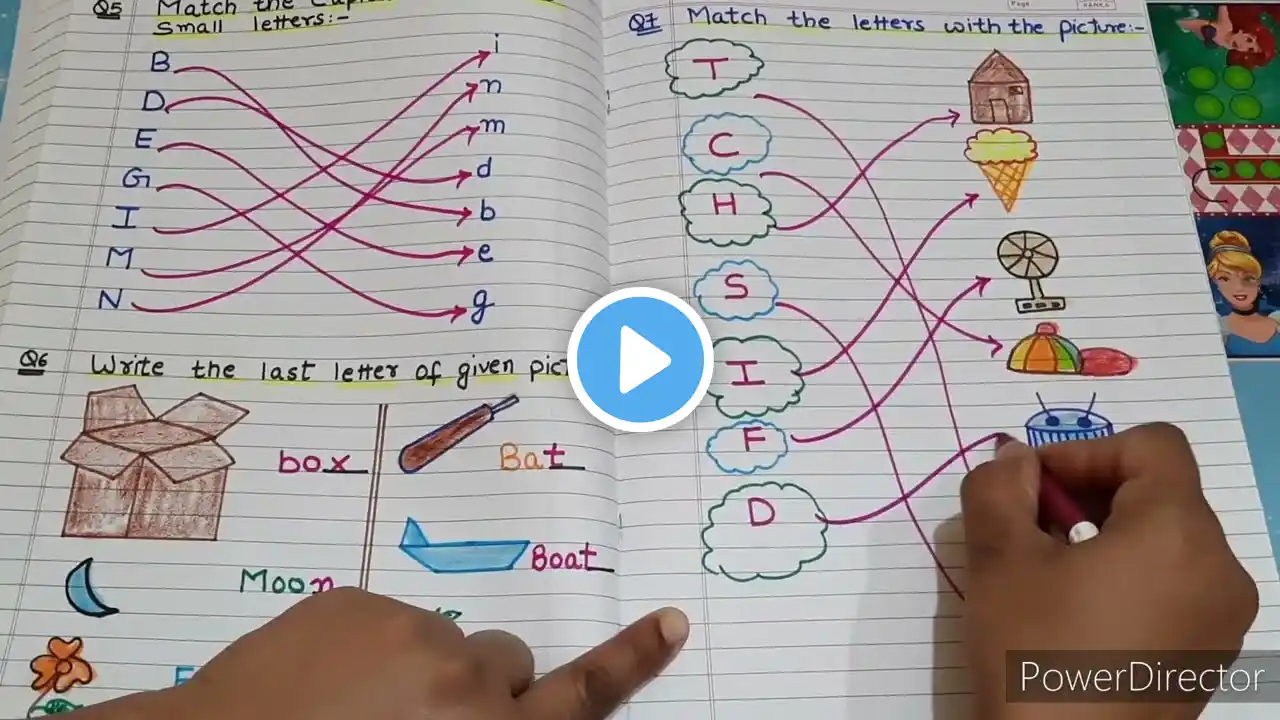 Q5 Match the
Small letters:-
B i
D n
E m
G d
I b
M e
N g
Q6 Write the last letter of given
box
Bat
Boat
Moon
Q7 Match the letters with the picture:-
T
C
H
S
I
F
D
PowerDirector